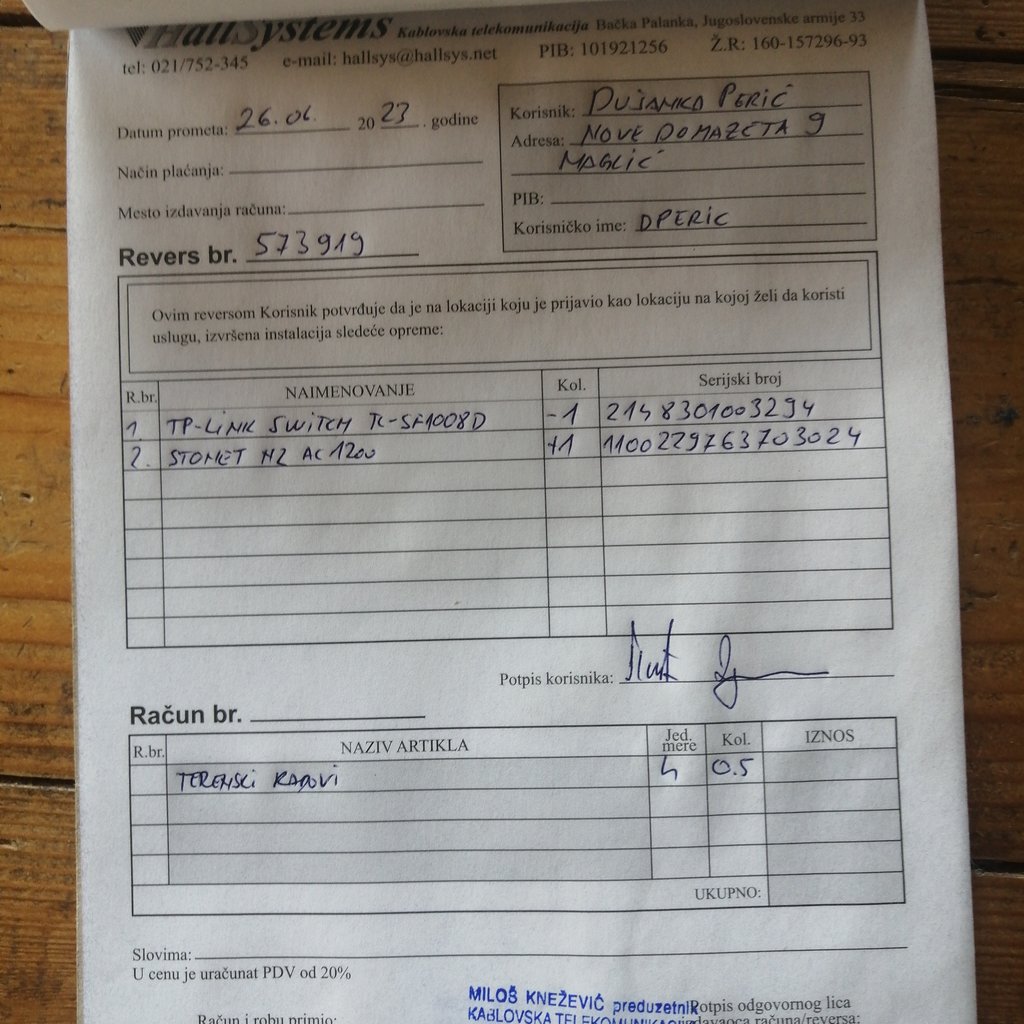 HallSystems Kablovska telekomunikacija Bačka Palanka, Jugoslovenske armije 33
tel: 021/752-345 e-mail: hallsys@hallsys.net PIB: 101921256 Ž.R: 160-157296-93
Datum prometa: 26.06. 2023. godine
Način plaćanja:
Mesto izdavanja računa:
Revers br. 573919
Korisnik: DUŠANKA PERIĆ
Adresa: NOVE DOMAZETA 9
MAGLIĆ
PIB:
Korisničko ime: DPERIC
Ovim reversom Korisnik potvrđuje da je na lokaciji koju je prijavio kao lokaciju na kojoj želi da koristi
uslugu, izvršena instalacija sledeće opreme:
R.br. NAIMENOVANJE Kol. Serijski broj
1. TP-LINK SWITCH TL-SF1008D -1 2148301003294
2. STONET N2 AC1200 +1 1100229763703024
Potpis korisnika:
Račun br.
R.br. NAZIV ARTIKLA Jed. mere Kol. IZNOS
TERENSKI RADOVI h 0.5
UKUPNO:
Slovima:
U cenu je uračunat PDV od 20%
MILOŠ KNEŽEVIĆ preduzetnik Potpis odgovornog lica
Račun i robu primio: KABLOVSKA izdavaoca računa/reversa: